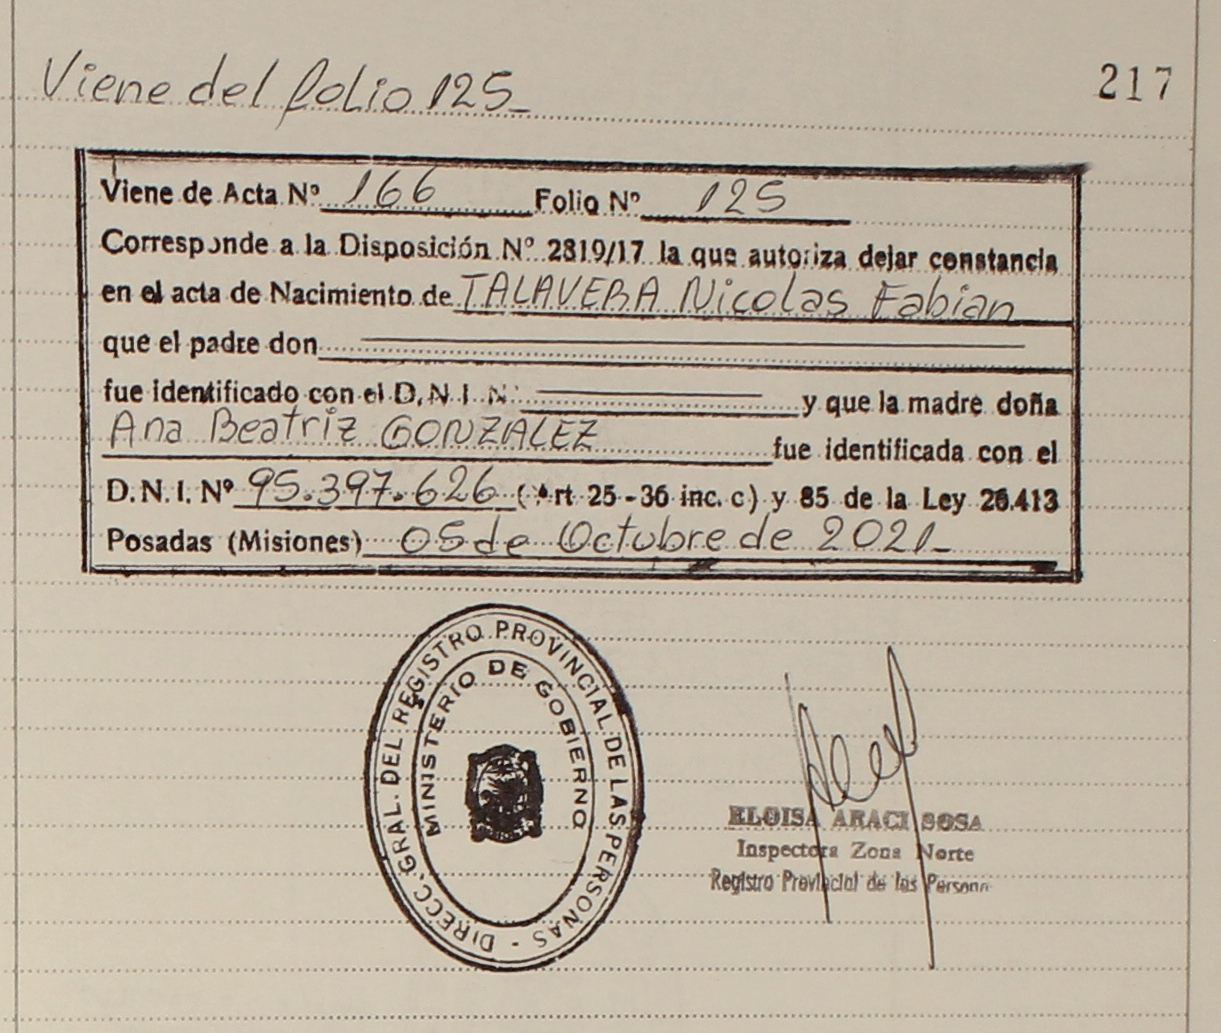 Viene del folio 125_
217
Viene de Acta Nº 166 Folio Nº 125
Corresponde a la Disposición Nº 2819/17 la que autoriza dejar constancia
en el acta de Nacimiento de TALAVERA Nicolas Fabian
que el padre don
fue identificado con el D.N.I. Nº y que la madre doña
Ana Beatriz GONZALEZ fue identificada con el
D.N.I. Nº 95.397.626 (Art 25-36 inc. c) y 85 de la Ley 26.413
Posadas (Misiones) 05 de Octubre de 2021_
DIRECC. GRAL. DEL REGISTRO PROVINCIAL DE LAS PERSONAS -
MINISTERIO DE GOBIERNO
ELOISA ARACI SOSA
Inspectora Zona Norte
Registro Provincial de las Personas